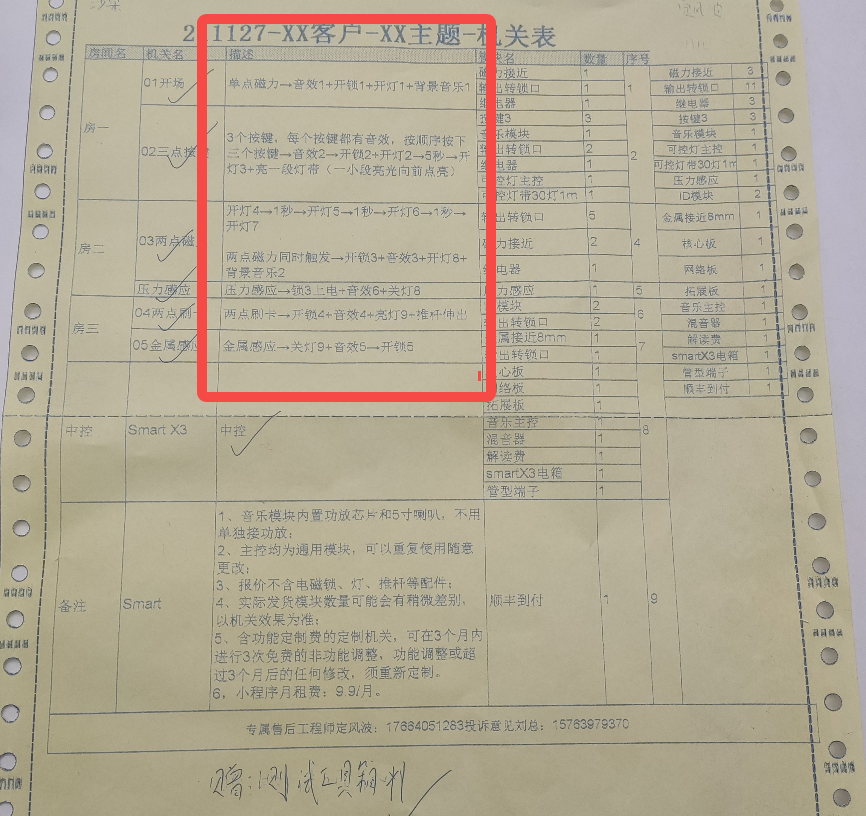 1127-XX客户-XX主题-机关表
房间名 机关名 描述 块名 数量 序号
房一
01开场
单点磁力→音效1+开锁1+开灯1+背景音乐1
磁力接近 1
输出转锁口 1
继电器 1
1
02三点按
3个按键，每个按键都有音效，按顺序按下
三个按键→音效2→开锁2+开灯2→5秒→开
灯3+亮一段灯带（一小段亮光向前点亮）
按键3 3
音乐模块 1
输出转锁口 2
继电器 1
可控灯主控 1
可控灯带30灯1m 1
2
房二
03两点磁
开灯4→1秒→开灯5→1秒→开灯6→1秒→
开灯7
两点磁力同时触发→开锁3+音效3+开灯8+
背景音乐2
输出转锁口 5
磁力接近 2
继电器 1
4
压力感应
压力感应→锁3上电+音效6+关灯8
压力感应 1
5
房三
04两点刷卡
两点刷卡→开锁4+音效4+亮灯9+推杆伸出
模块 2
出转锁口 2
6
05金属感应
金属感应→关灯9+音效5→开锁5
属接近8mm 1
出转锁口 1
7
中控 Smart X3 中控
心板 1
网络板 1
拓展板 1
音乐主控 1
混音器 1
解读费 1
smartX3电箱 1
管型端子 1
8
磁力接近 3
输出转锁口 11
继电器 3
按键3 3
音乐模块 1
可控灯主控 1
可控灯带30灯1m 1
压力感应 1
ID模块 2
金属接近8mm 1
核心板 1
网络板 1
拓展板 1
音乐主控 1
混音器 1
解读费 1
smartX3电箱 1
管型端子 1
顺丰到付 1
备注 Smart
1、音乐模块内置功放芯片和5寸喇叭，不用
单独接功放；
2、主控均为通用模块，可以重复使用随意
更改；
3、报价不含电磁锁、灯、推杆等配件；
4、实际发货模块数量可能会有稍微差别，
以机关效果为准；
5、含功能定制费的定制机关，可在3个月内
进行3次免费的非功能调整，功能调整或超
过3个月后的任何修改，须重新定制。
6，小程序月租费：9.9/月。
顺丰到付 1 9
专属售后工程师定风波：17664051283投诉意见刘总：15763979370
赠：测试工具辅料